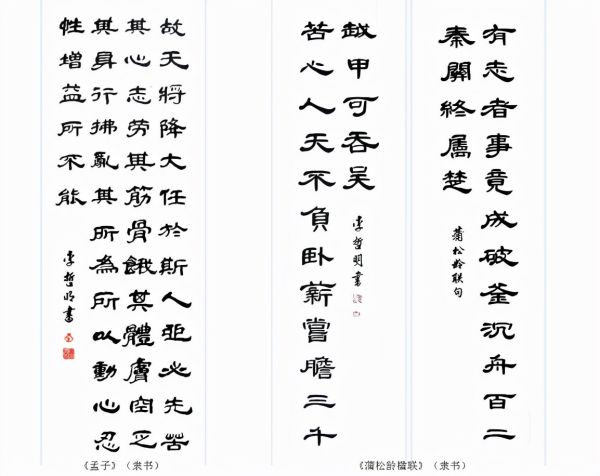 有志者事竟成破釜沉舟百二
秦關終屬楚
蒲松龄联句
苦心人天不負卧薪嘗膽三千
越甲可吞吴
李哲明書
《蒲松龄楹联》（隶书）
故天將降大任於斯人也必先苦
其心志劳其筋骨餓其體膚空乏
其身行拂亂其所為所以動心忍
性增益所不能
李哲明書
《孟子》（隶书）